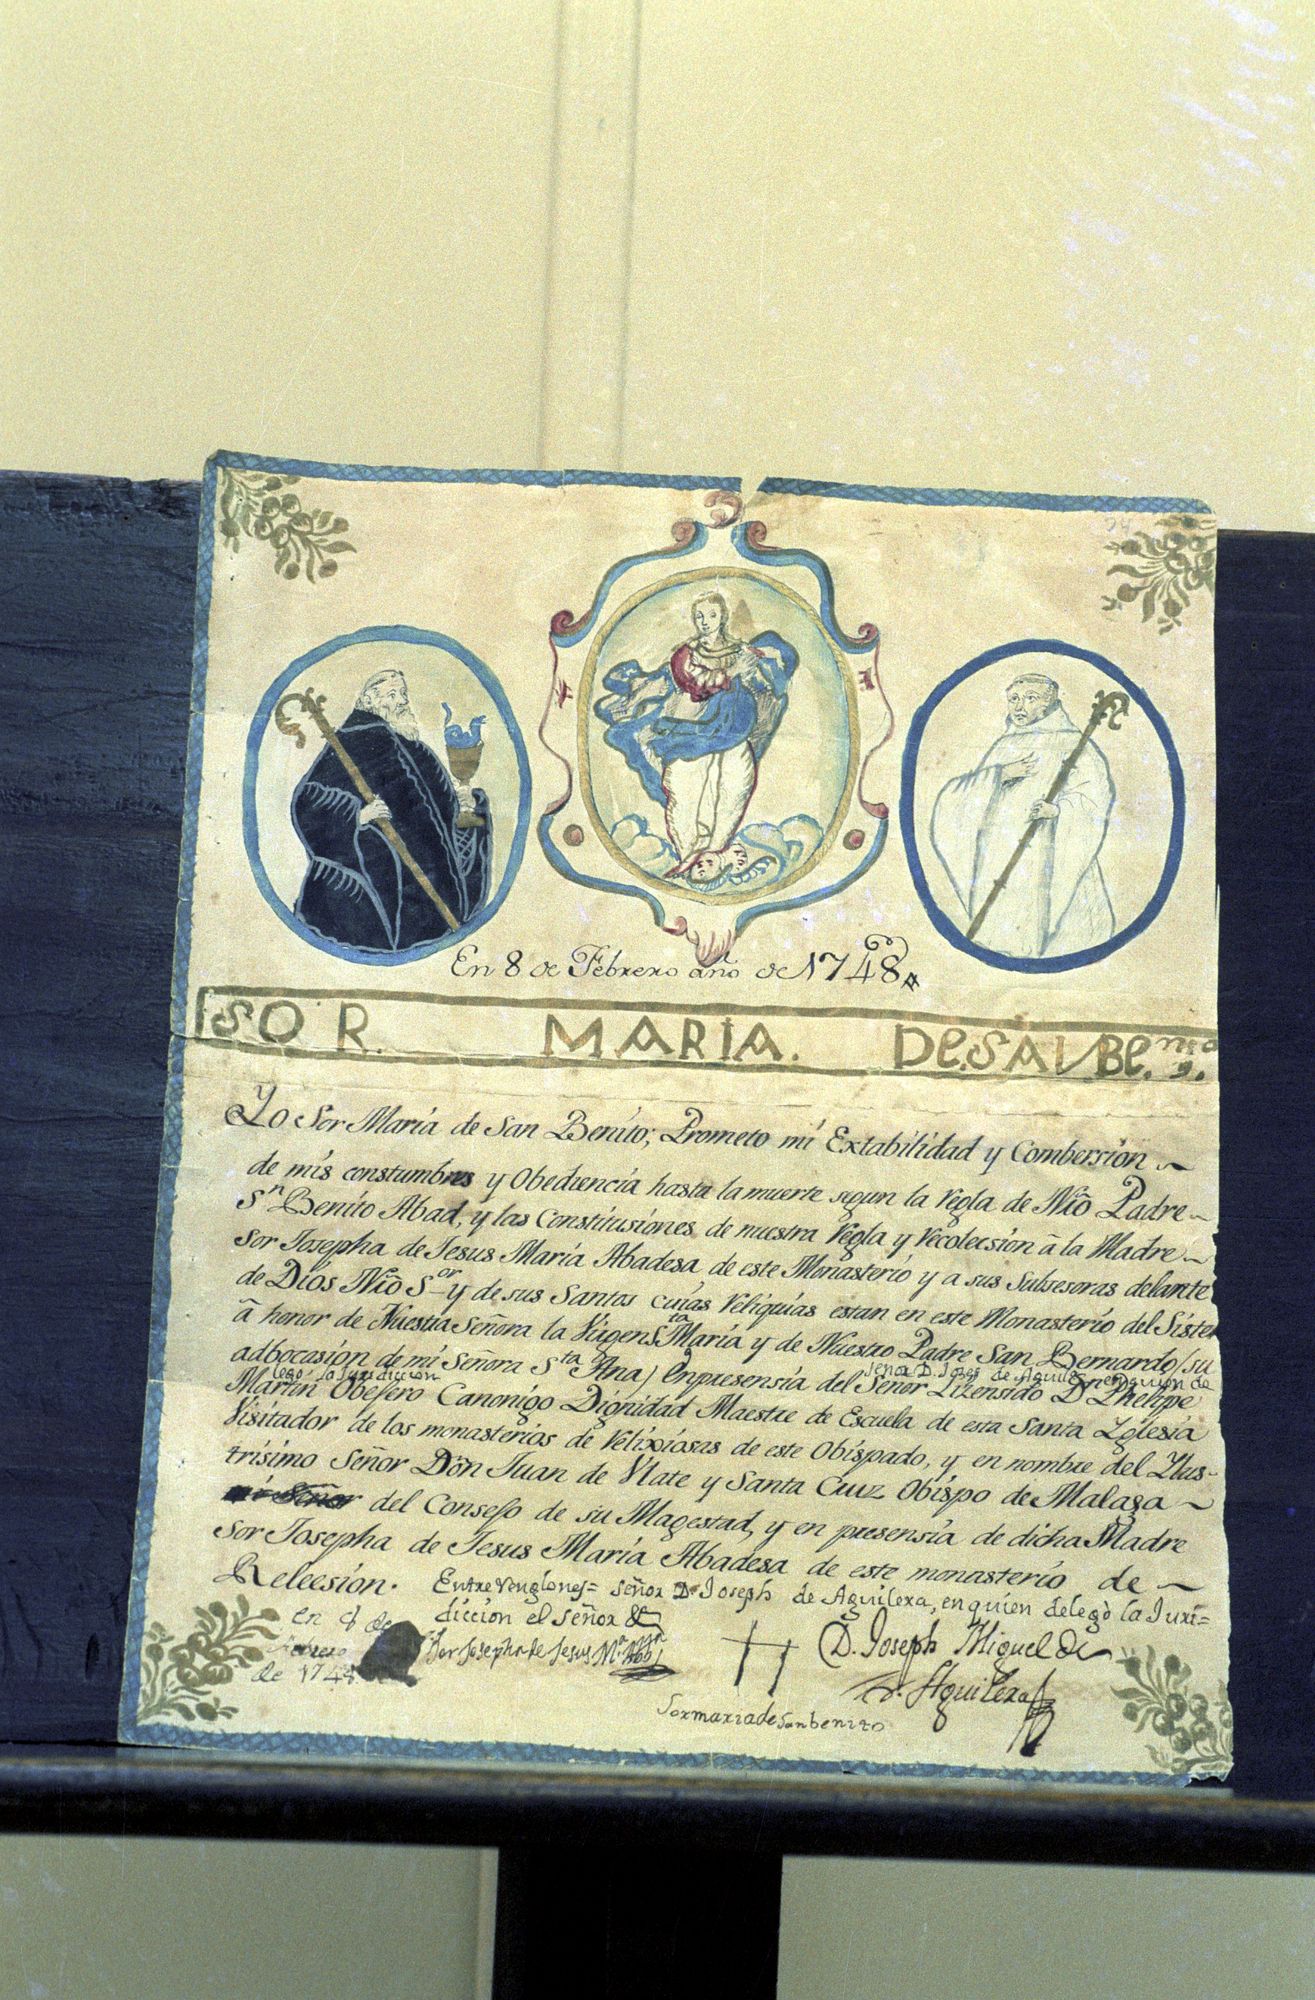 En 8 de Febrero año de 1748
SOR. MARIA. De. SAN Be.nito
Yo Sor María de San Benito; Prometo mi Extabilidad y Combersion
de mis constumbres y Obediencia hasta la muerte segun la regla de Nro Padre
Sn Benito Abad, y las Constitusiones de nuestra regla y recolecsion â la Madre
Sor Josepha de Jesus María Abadesa de este Monasterio y a sus Subsesoras delante
de Dios Nro Sor y de sus Santos cuias reliquias estan en este Monasterio del Sister
â honor de Nuestra Señora la Virgen Sta María y de Nuestro Padre San Bernardo (su
adbocasion de mi Señora Sta Ana) Enpresensia del Señor Lizensido Dn Phelipe
señor D. Joseph de Aguilera en quien de
lego la Juridiccion
Martin Obesero Canonigo Dignidad Maestre de Escuela de esta Santa Yglesia
Visitador de los monasterios de relixiosas de este Obispado, y en nombre del Ylus-
trisimo Señor Dōn Juan de Ylate y Santa Cruz Obispo de Malaga
mi Señor del Consejo de su Magestad, y en presensia de dicha Madre
Sor Josepha de Jesus María Abadesa de este monasterio de
Relecsion.
Entre renglones= señor D. Joseph de Aguilera, en quien delegò la Juri=
diccion el señor
en 8 de
febrero
de 1748
Sor Josepha de Jesus Ma Abba
D. Joseph Miguel de
Aguilera
Sor maria de San benito